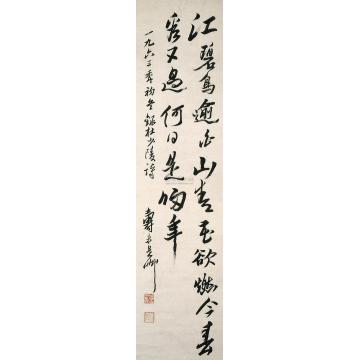 江碧鳥逾白山青花欲燃今春
看又過何日是歸年
一九六三年初冬錄杜少陵詩